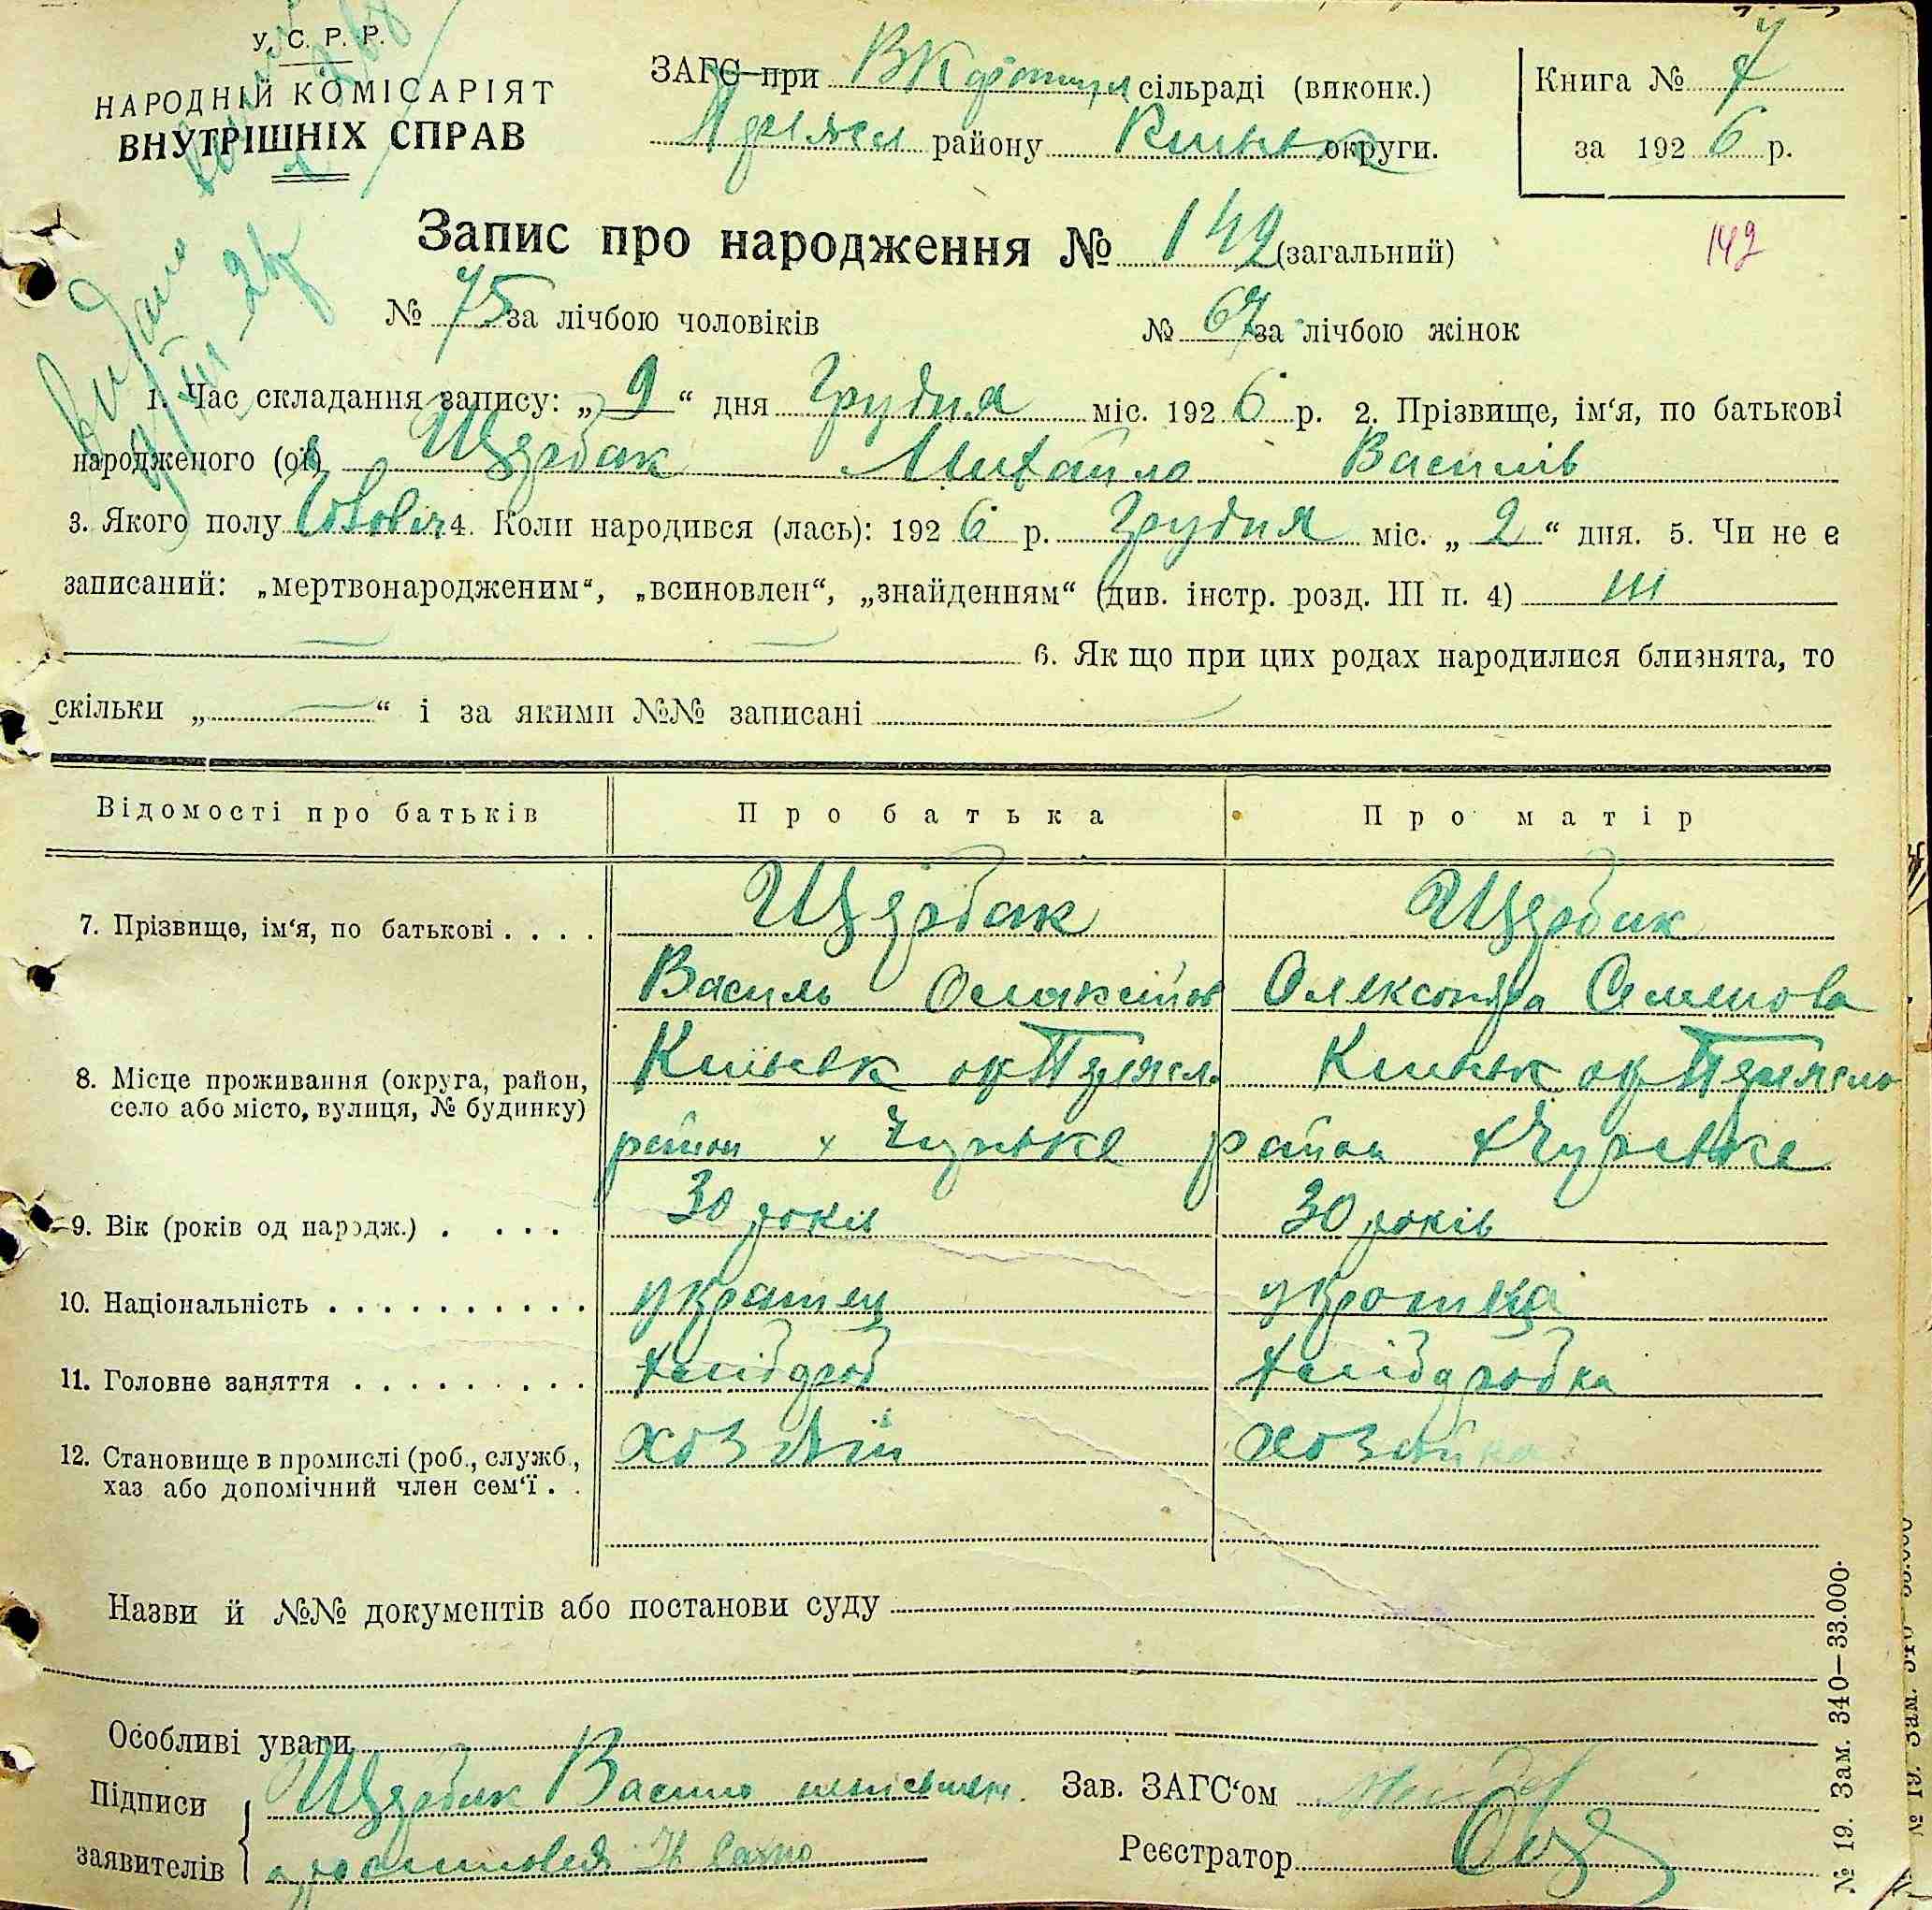 У. С. Р. Р.
НАРОДНІЙ КОМІСАРІЯТ
ВНУТРІШНІХ СПРАВ
ЗАГС при сільраді (виконк.)
району округи.
Книга № 7
за 1926 р.
Запис про народження № 142 (загальний)
142
№ 75 за лічбою чоловіків № 67 за лічбою жінок
Видано
1. Час складання запису: „9“ дня Грудня міс. 1926 р. 2. Прізвище, ім‘я, по батькові
народженого (ої) Щербак Михайло Василів
3. Якого полу 4. Коли народився (лась): 1926 р. Грудня міс. „2“ дня. 5. Чи не є
записаний: „мертвонародженим“, „всиновлен“, „знайденням“ (див. інстр. розд. III п. 4)
6. Як що при цих родах народилися близнята, то
скільки „ “ і за якими №№ записані
Відомості про батьків Про батька Про матір
7. Прізвище, ім‘я, по батькові . . . . Щербак Щербак
Василь Олександра Семенова
8. Місце проживання (округа, район,
село або місто, вулиця, № будинку)
район район
9. Вік (років од народж.) . . . . 30 років 30 років
10. Національність . . . . . . . . . . українец українка
11. Головне заняття . . . . . . . . . хлібороб хліборобка
12. Становище в промислі (роб., служб., хозяїн хозяйка
хаз або допомічний член сем‘ї . .
Назви й №№ документів або постанови суду
Особливі уваги
Підписи Щербак Василь Зав. ЗАГС‘ом
заявителів Реєстратор
№ 19. Зам. 340—33.000.